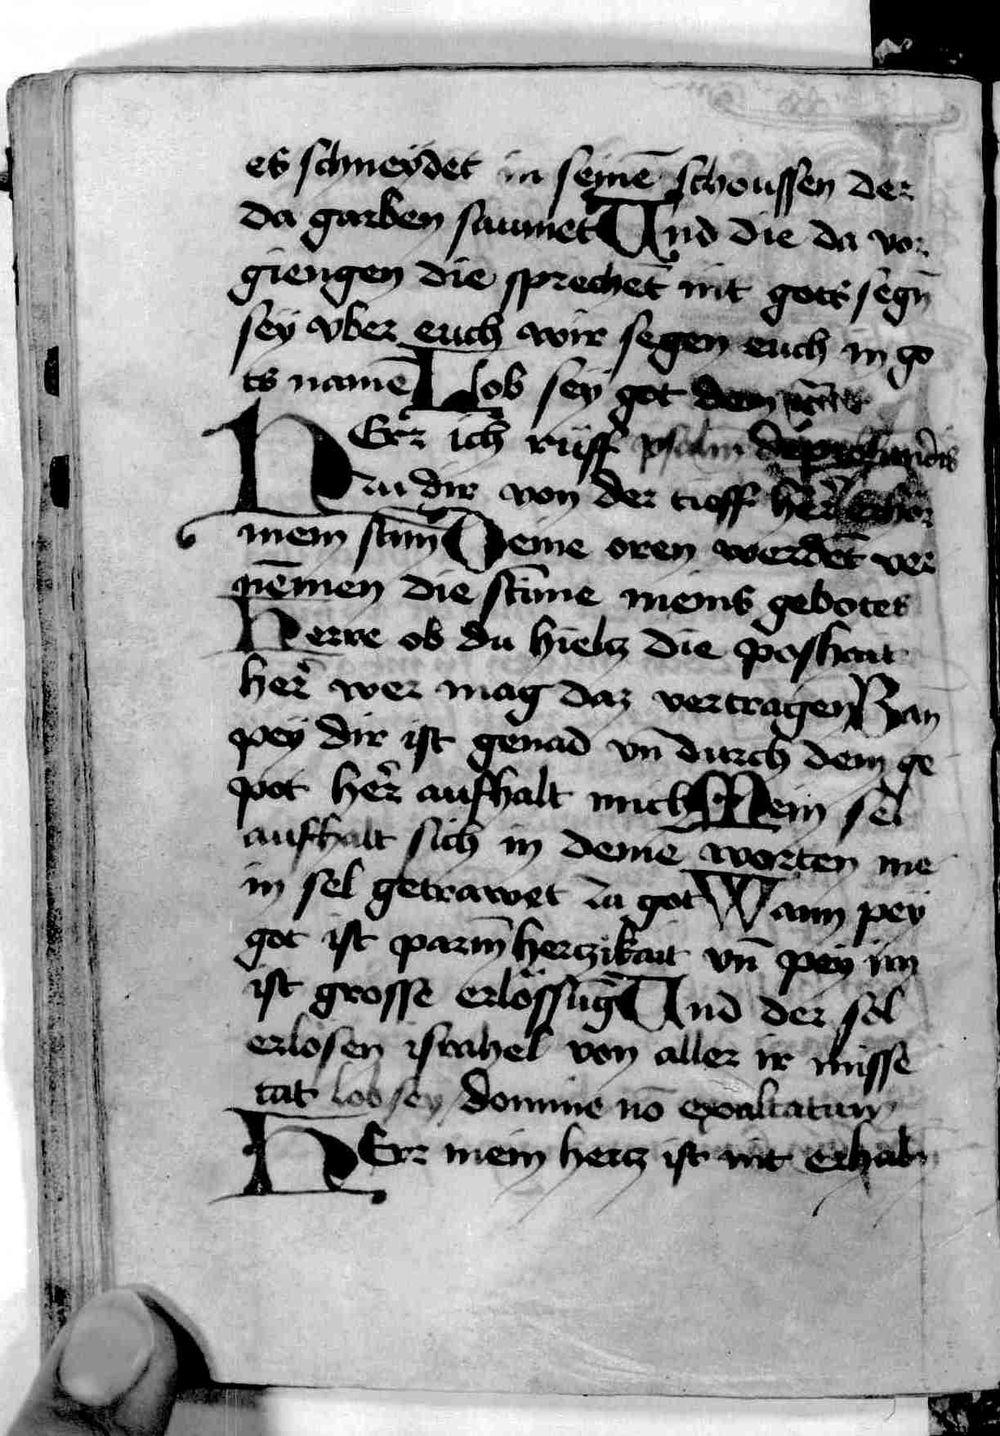 es schneydet in seinē schoussen der
da garben sammet Und die da vor
giengen die sprechēt nit gots segn̄
sey vber euch wir segen euch in go
ts namē Lob sey got dem
HErr̄ ich rüff psalm de profundis
zu dir von der tieff her̄ erhör
mein stim̄ Deine oren werdēt ver
nēmen die stīme meins gebotes
Herre ob du hieltz die poshait
her̄ wer mag daz vertragen Wan̄
pey dir ist genad vn̄ durch dein ge
pot her̄ aufhalt mich Mein sel
aufhalt sich in deinē worten me
in sel getrawet in got Wann pey
got ist parm̄hertzikait vn̄ pey im
ist grosse erlössūg Und der sol
erlosen israhel von aller ir misse
tat lob sey domine nō exaltatum
HErr mein hertz ist nit erhabn